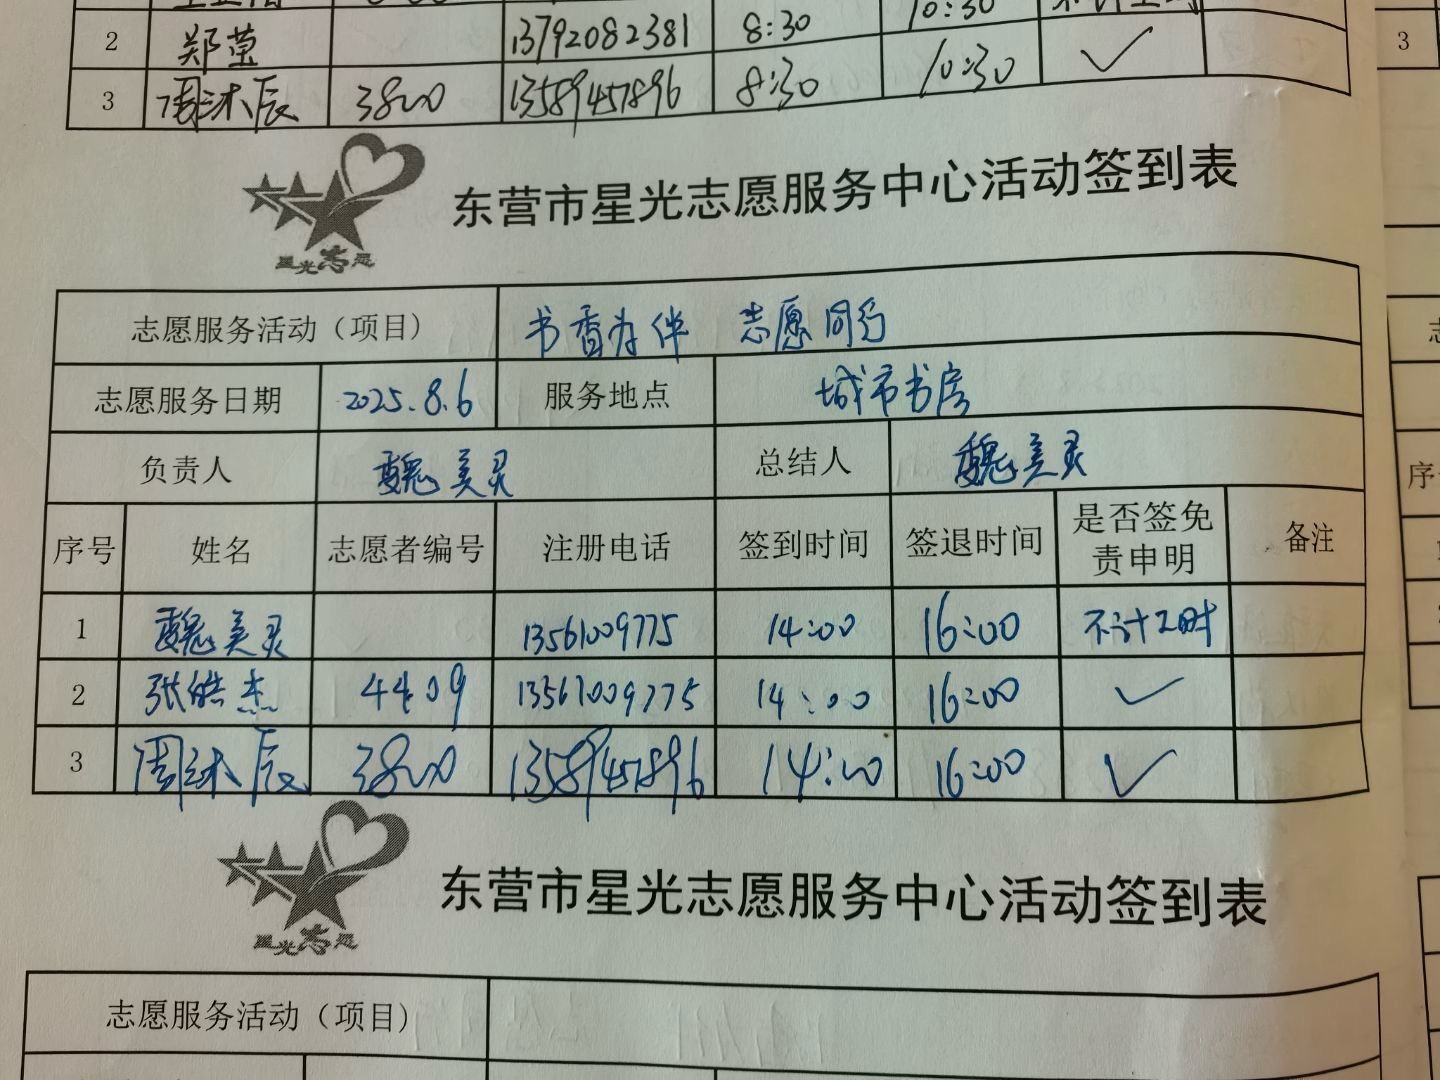 2 郑莹 13792082381 8:30 10:30 ✓
3 周沐辰 3800 13589451896 8:30 10:30
3
星光志愿
东营市星光志愿服务中心活动签到表
志愿服务活动（项目） 书香为伴 志愿同行
志愿服务日期 2025.8.6 服务地点 城市书房
负责人 魏美灵 总结人 魏美灵
序号 姓名 志愿者编号 注册电话 签到时间 签退时间 是否签免责申明 备注
1 魏美灵 13561009775 14:00 16:00 不计工时
2 张皓杰 4409 13561009775 14:00 16:00 ✓
3 周沐辰 3800 13589451896 14:00 16:00 ✓
星光志愿
东营市星光志愿服务中心活动签到表
志愿服务活动（项目）